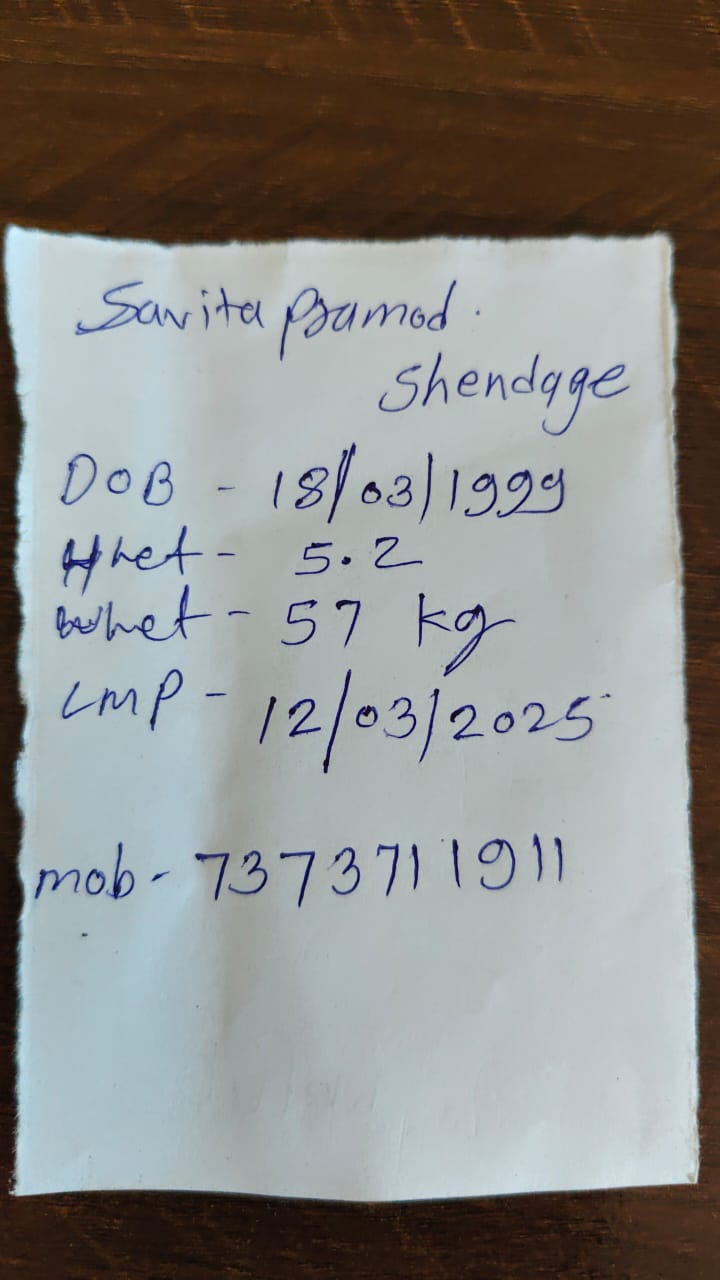 Savita Pramod.
Shendage
DOB - 18/03/1999
Hhet - 5.2
Whet - 57 kg
LMP - 12/03/2025
mob - 7373711911